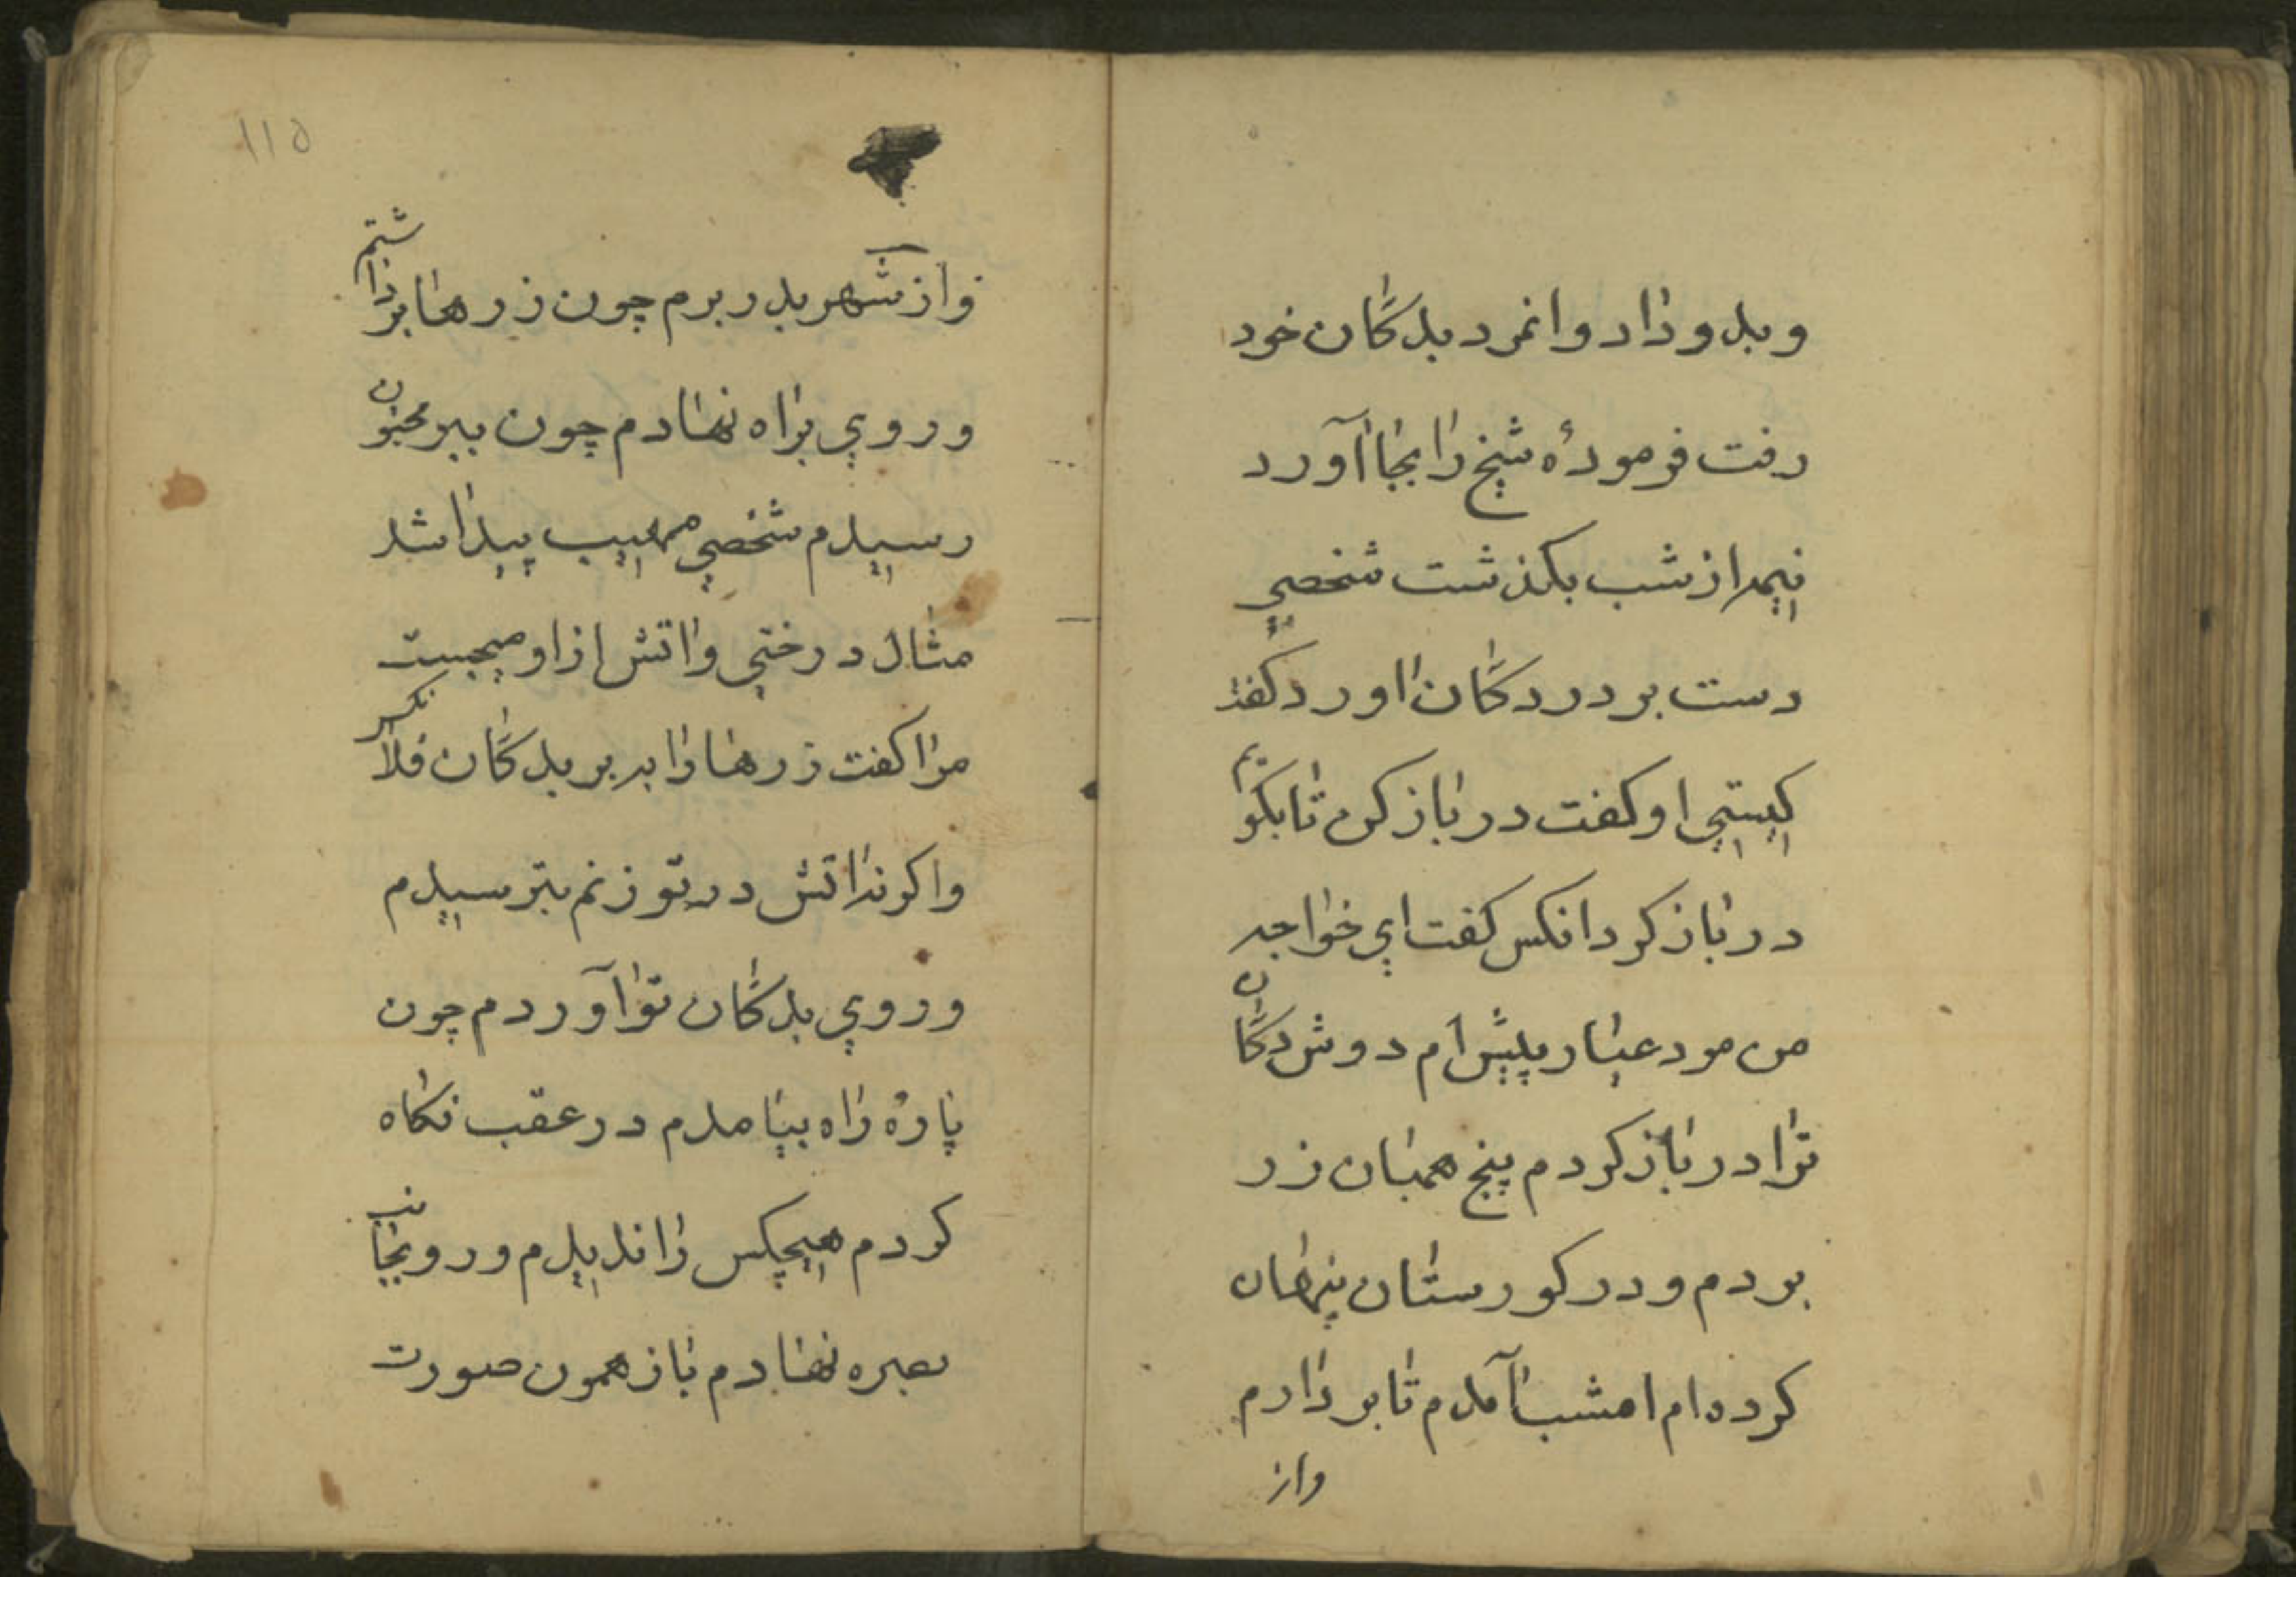 و بدو داد و انمرد بدکان خود
رفت فرمودهٔ شیخ را بجا آورد
نیمه از شب بکذشت شخصی
دست بر در دکان او زد کفت
کیستی او کفت در باز کن تا بکویم
در باز کرد انکس کفت ای خواجه
من مرد عیار پیشه‌ام دوش دکان
ترا در باز کردم پنج همیان زر
بردم و در کورستان پنهان
کرده ام امشب آمدم تا بر دارم
واز
واز شهر بدر برم چون زرها برداشتم
و روی براه نهادم چون ببر
رسیدم شخصی مهیب پیدا شد
مثال درختی و اتش از او میجست
مرا کفت زرها را ببر بدکان فلان کس
واکرنه اتش در تو زنم بترسیدم
و روی بدکان تو آوردم چون
پارهٔ راه بیامدم در عقب نکاه
کردم هیچکس را ندیدم و رو بجانب
بصره نهادم باز همون صورت
۱۱۵